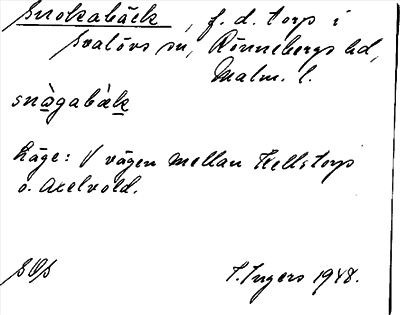 Snokabäck, f. d. torp i
Svalövs sn, Rönnebergs hd,
Malm. l.
snàgabàk
Läge: V vägen mellan Källstorp
o. Axelvold.
SOS
I. Ingers 1948.